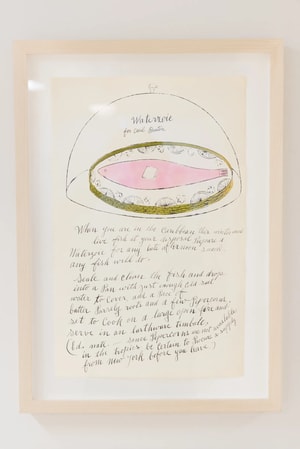 Waterzoie
for
When you are in the Caribbean this winter and
live fish at your disposal Prepare a
Waterzoie for any
any fish will do -
Scale and clean the fish and drop
into a Pan with just enough cold salt
water to cover, add a Piece of
butter, Parsley roots and a few Peppercorns,
set to Cook on a large open fire and
serve in an earthware timbale,
(Ed. note - some Peppercorns are not available
in the tropics be certain to Procure a supply
from New York before you leave.)